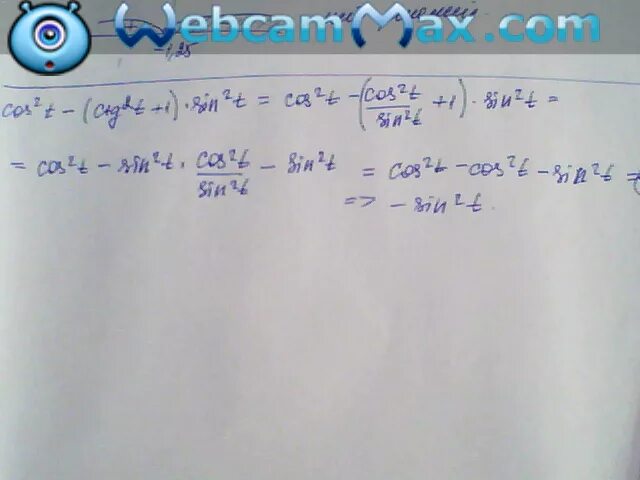 WebcamMax.com
-1,25
cos²t - (ctg²t + 1) · sin²t = cos²t - (cos²t/sin²t + 1) · sin²t =
= cos²t - sin²t · cos²t/sin²t - sin²t = cos²t - cos²t - sin²t =
=> - sin²t.